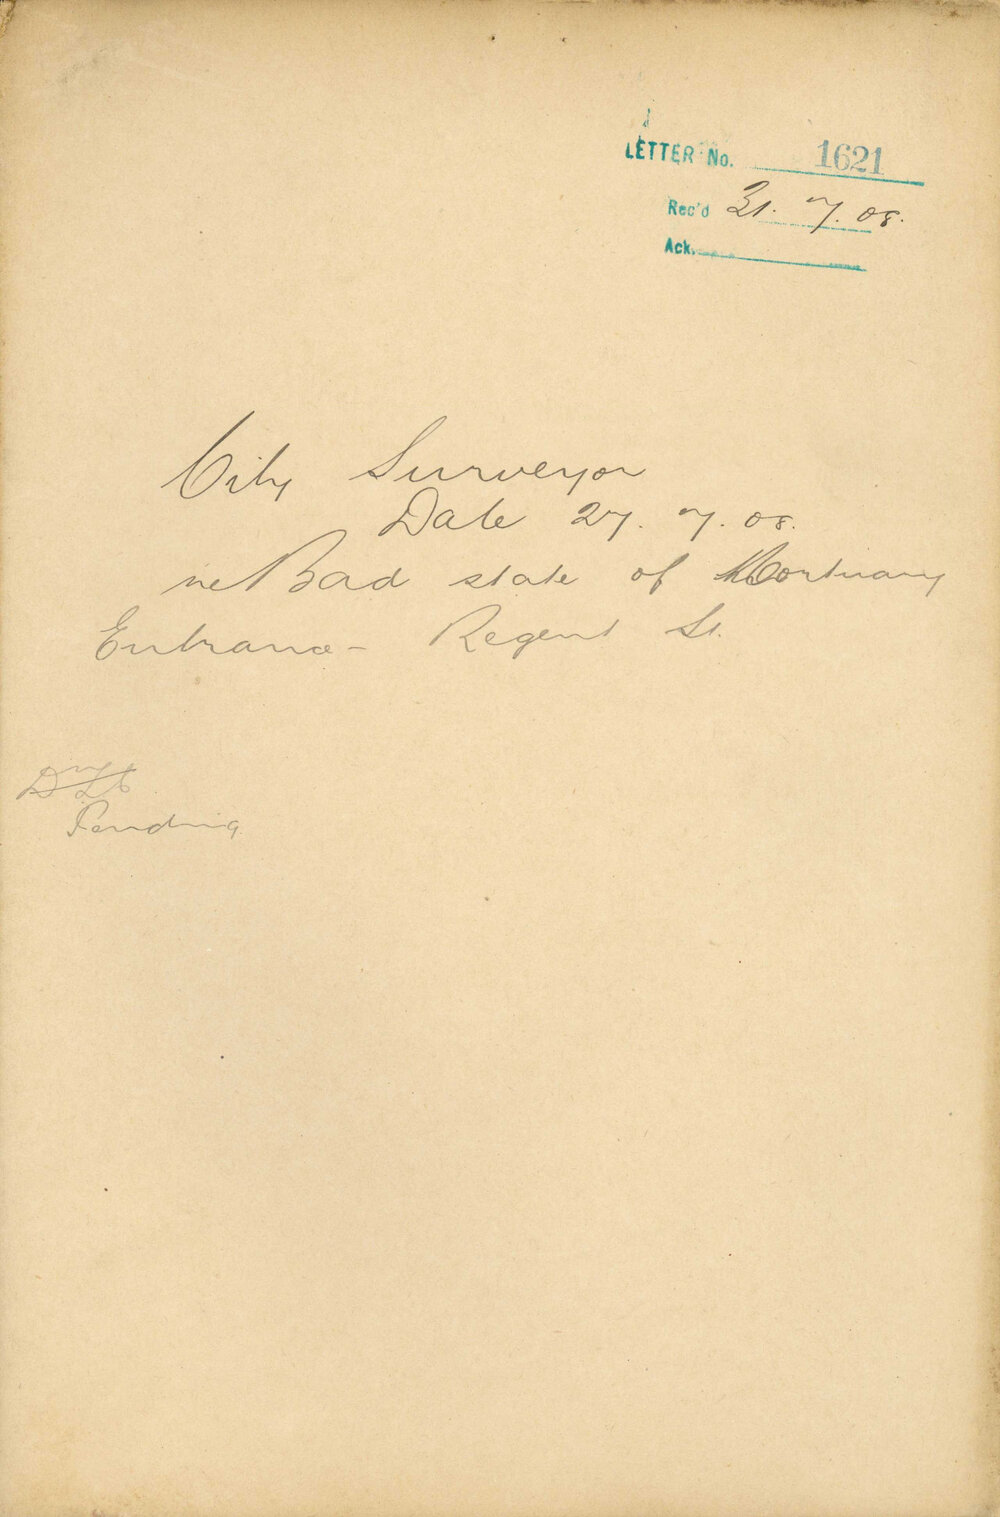 LETTER No. 1621
Rec'd 31. 7. 08.
Ack.
City Surveyor
Date 27. 7. 08.
re Bad state of Mortuary
Entrance - Regent St.
Pending